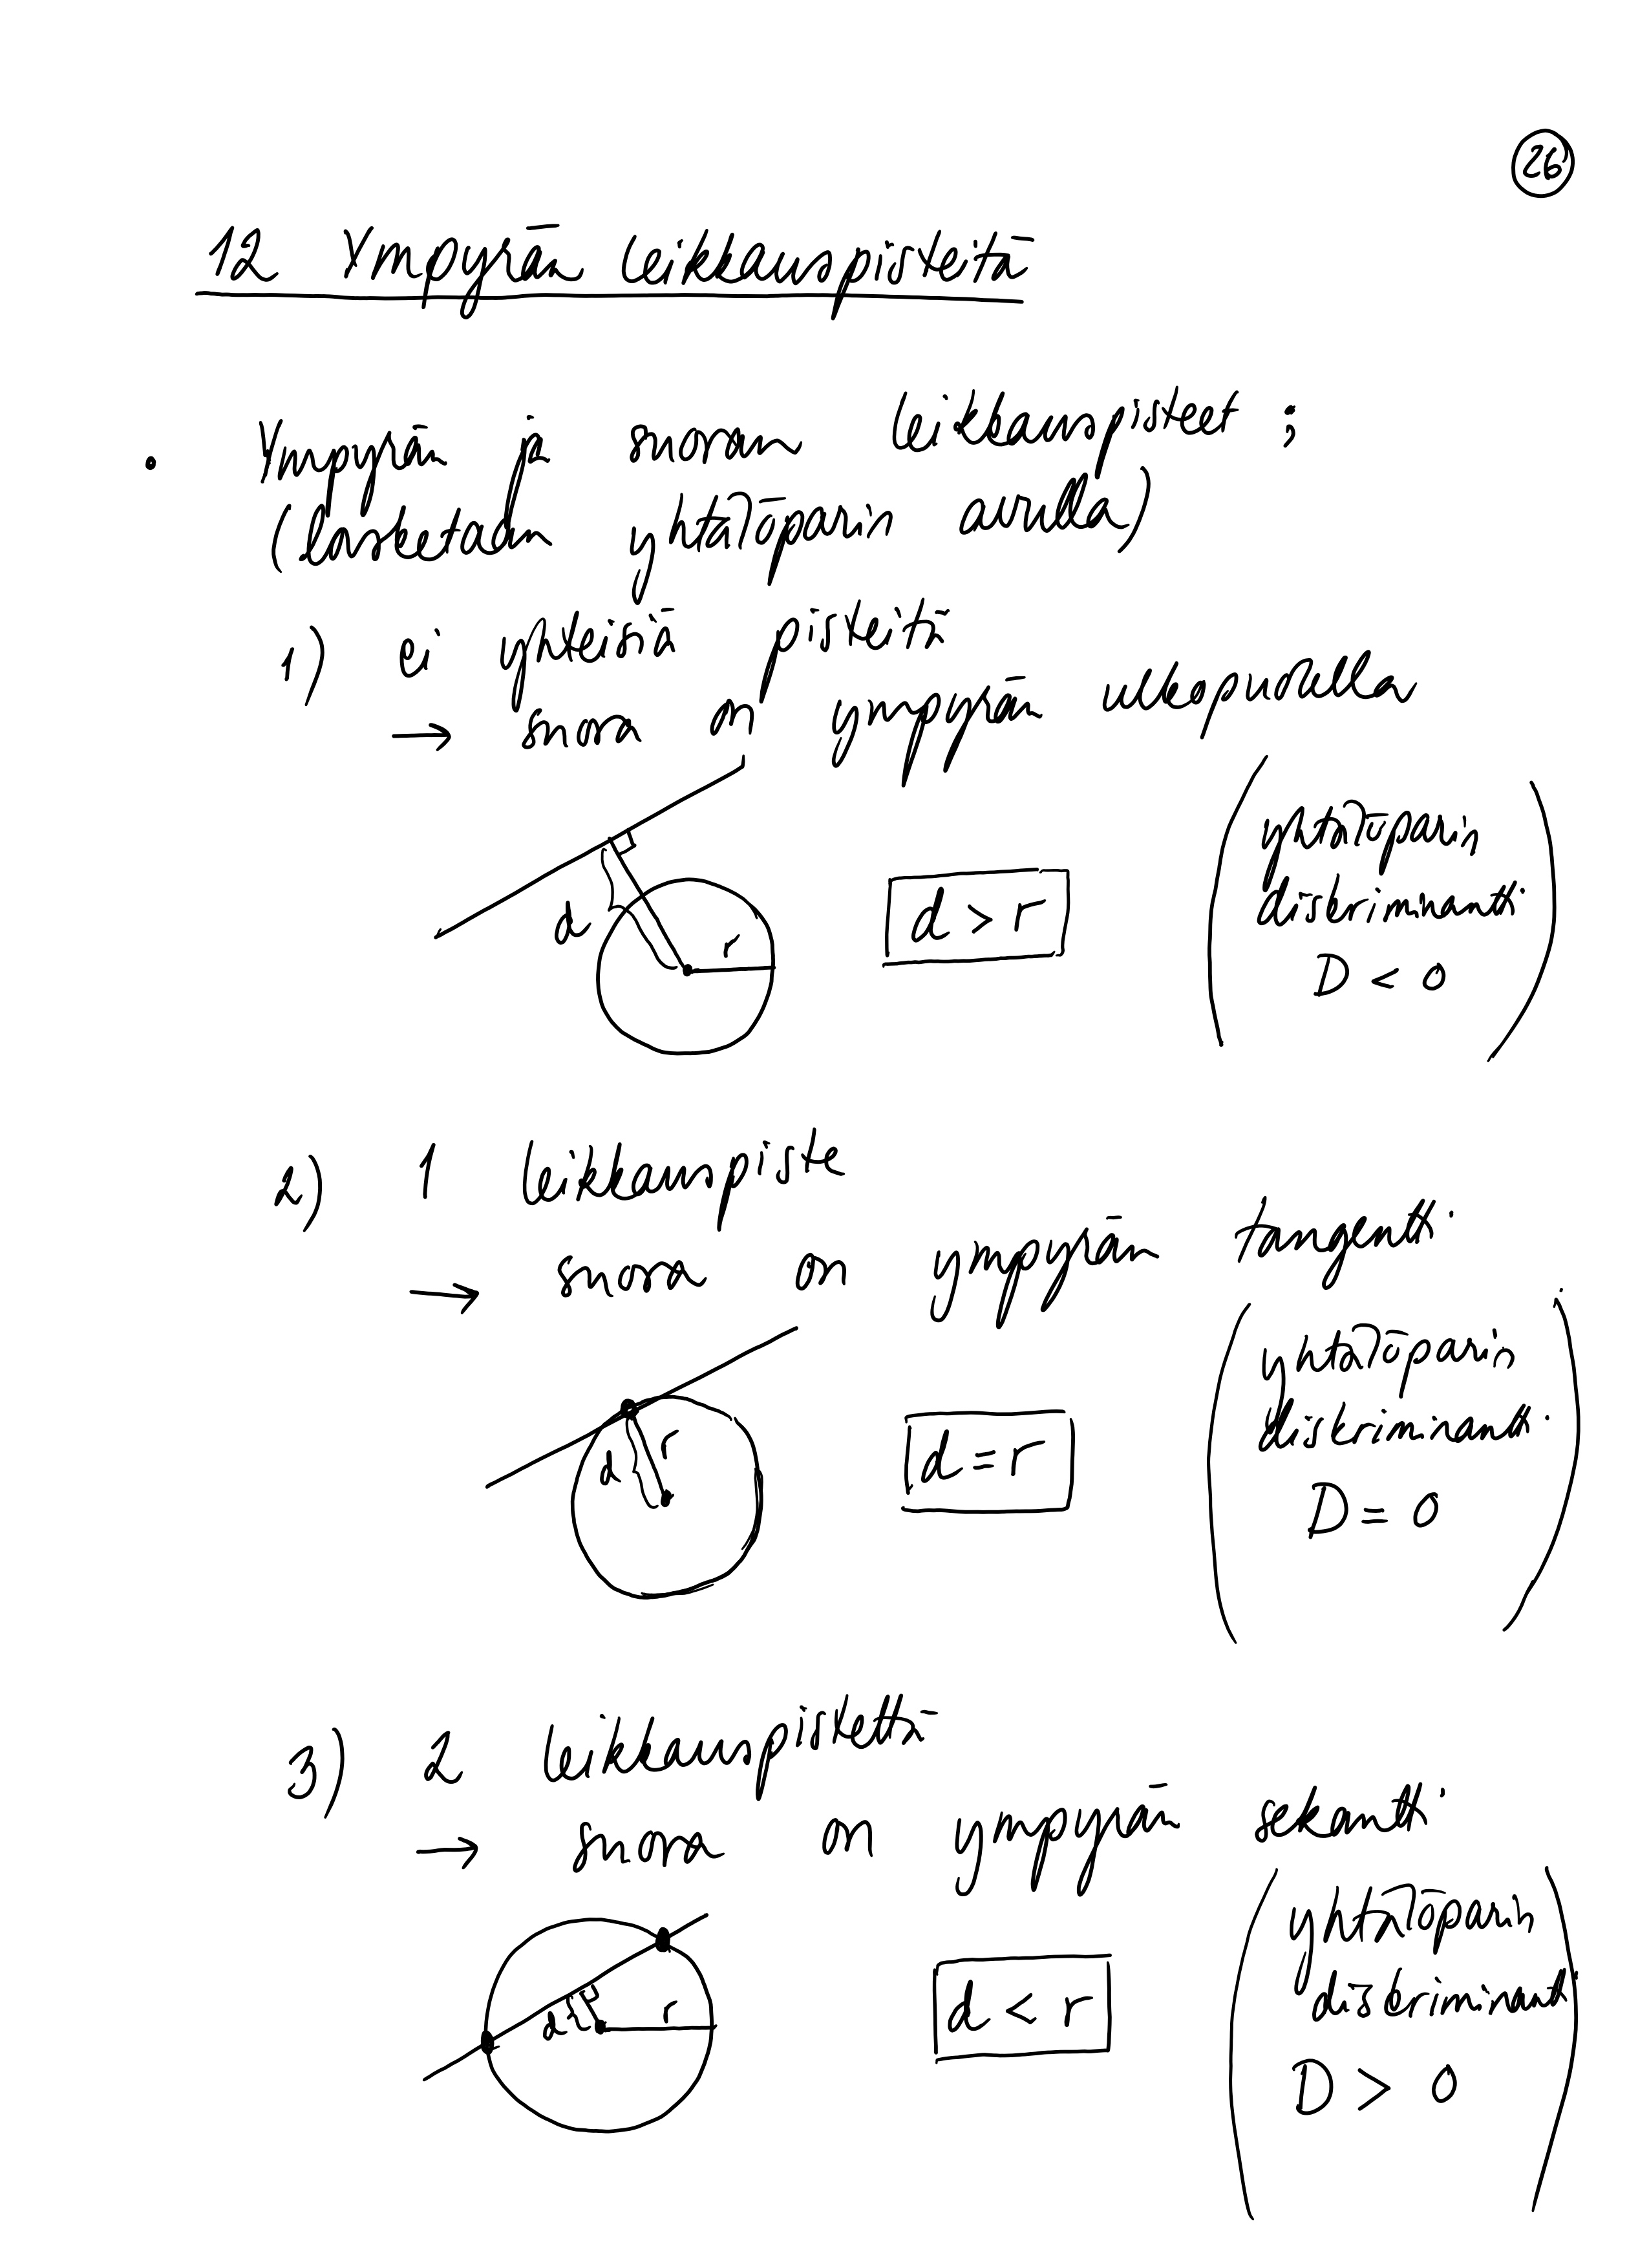 26
12 Ympyrän leikkauspisteitä
• Ympyrän ja suoran leikkauspisteet:
(lasketaan yhtälöparin avulla)
1) ei yhteisiä pisteitä
→ suora on ympyrän ulkopuolella
d
r
d > r
yhtälöparin
diskriminantti
D < 0
2) 1 leikkauspiste
→ suora on ympyrän tangentti
d
r
d = r
yhtälöparin
diskriminantti
D = 0
3) 2 leikkauspistettä
→ suora on ympyrän sekantti
d
r
d < r
yhtälöparin
diskriminantti
D > 0